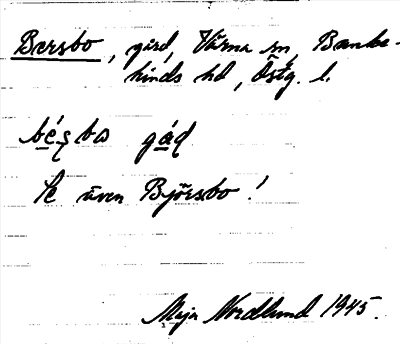 Bersbo, gård, Värna sn, Banke-
kinds hd, Östg. l.
bésbω gáɖ
Se även Björsbo!
Maja Nordlund 1945.